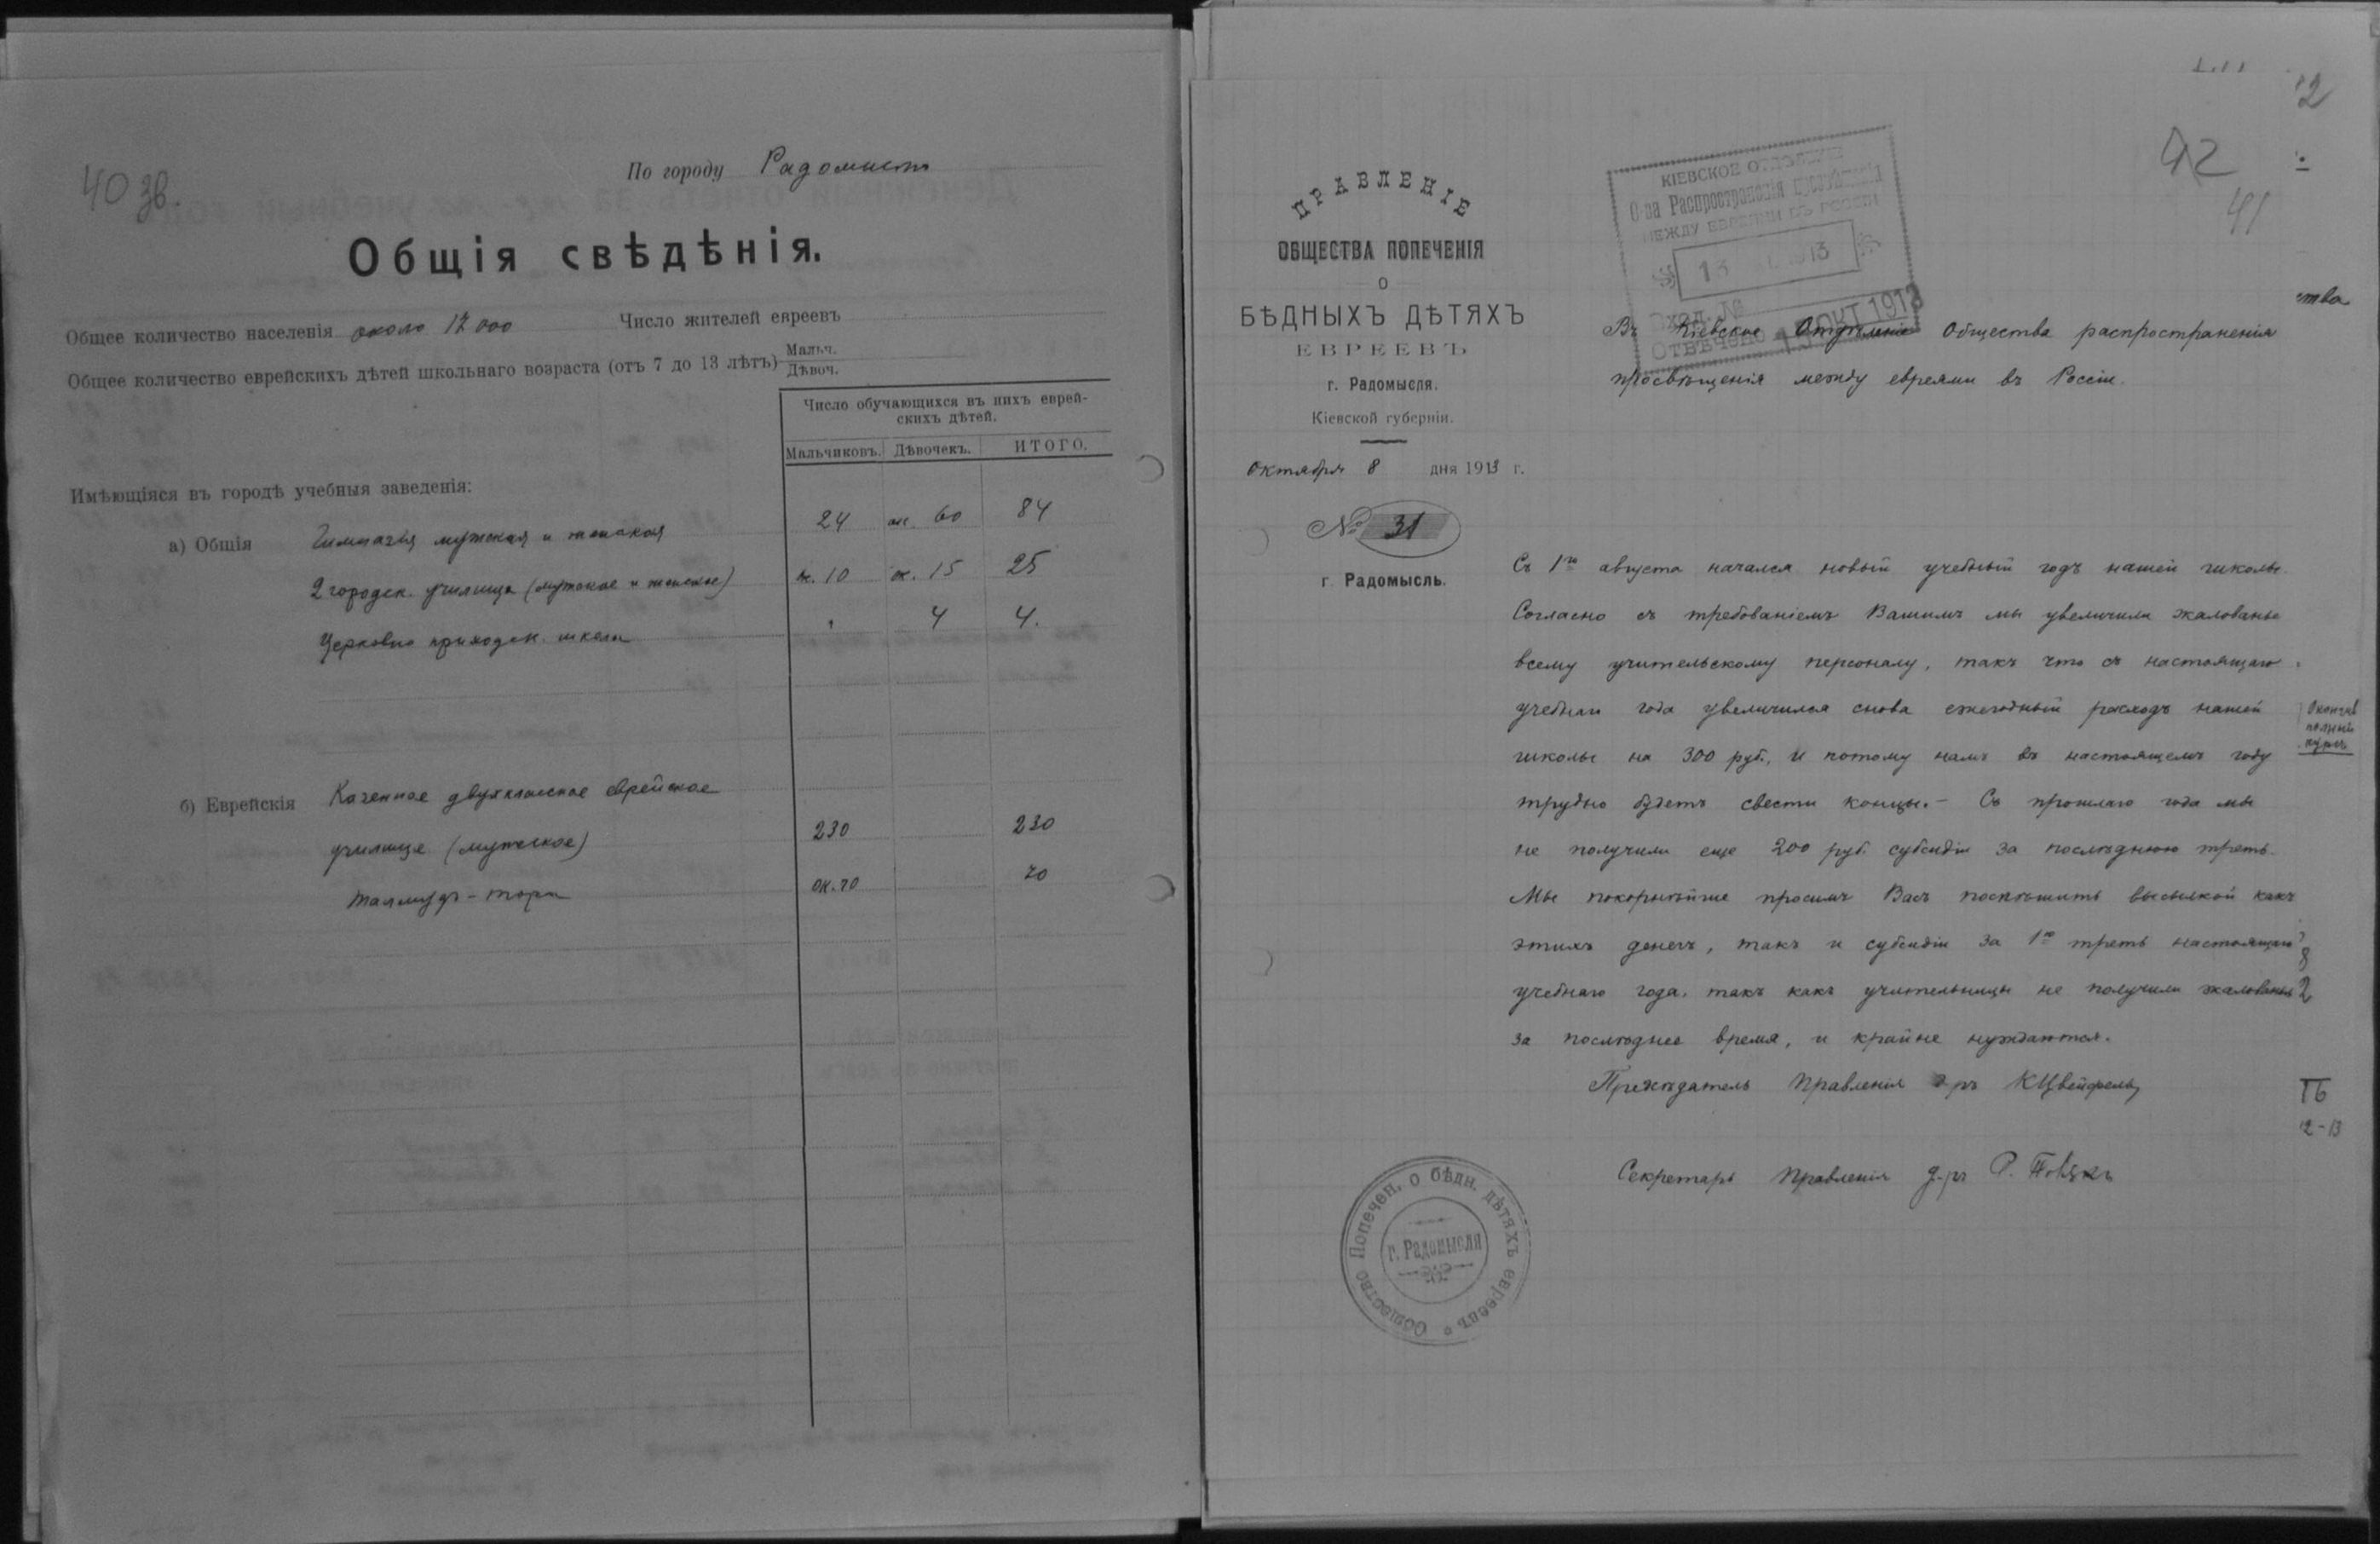 40 зв.
По городу Радомыслъ
Общія свѣдѣнія.
Общее количество населенія около 17 000 Число жителей евреевъ
Общее количество еврейскихъ дѣтей школьнаго возраста (отъ 7 до 13 лѣтъ) Мальч.
Дѣвоч.
Число обучающихся въ нихъ еврей-
скихъ дѣтей.
Мальчиковъ. Дѣвочекъ. ИТОГО.
Имѣющіяся въ городѣ учебныя заведенія:
а) Общія Гимназія мужская и женская 24 ок. 60 84
2 городск. училища (мужское и женское) ок. 10 ок. 15 25
Церковно приходск. школа " 4 4.
б) Еврейскія Казенное двухклассное еврейское
училище (мужское) 230 230
Талмудъ-тора ок. 70 70
42
41
ПРАВЛЕНІЕ
ОБЩЕСТВА ПОПЕЧЕНІЯ
О
БѢДНЫХЪ ДѢТЯХЪ
ЕВРЕЕВЪ
г. Радомысля.
Кіевской губерніи.
Октября 8 дня 1913 г.
№ 31
г. Радомысль.
КІЕВСКОЕ ОТДѢЛЕНІЕ
О-ва Распространенія просвѣщенія
МЕЖДУ ЕВРЕЯМИ ВЪ РОССІИ
13 1913
Вход. №
Отвѣчено 15 ОКТ 1913
Въ Кіевское Отдѣленіе Общества распространенія
просвѣщенія между евреями въ Россіи.
Съ 1го августа начался новый учебный годъ нашей школы.
Согласно съ требованіемъ Вашимъ мы увеличили жалованье
всему учительскому персоналу, такъ что съ настоящаго
учебнаго года увеличился снова ежегодный расходъ нашей
школы на 300 руб., и потому намъ въ настоящемъ году
трудно будетъ свести концы. – Съ прошлаго года мы
не получили еще 200 руб. субсидіи за послѣднюю треть.
Мы покорнѣйше просимъ Васъ поспѣшить высылкой какъ
этихъ денегъ, такъ и субсидіи за 1ю треть настоящаго
учебнаго года, такъ какъ учительницы не получили жалованья
за послѣднее время, и крайне нуждаются.
Предсѣдатель Правленія д-ръ
Секретарь Правленія д-ръ
Общество Попечен. о бѣдн. дѣтяхъ евреевъ
г. Радомысля
ства
Окончив
полный
курсъ
8
2
12-13